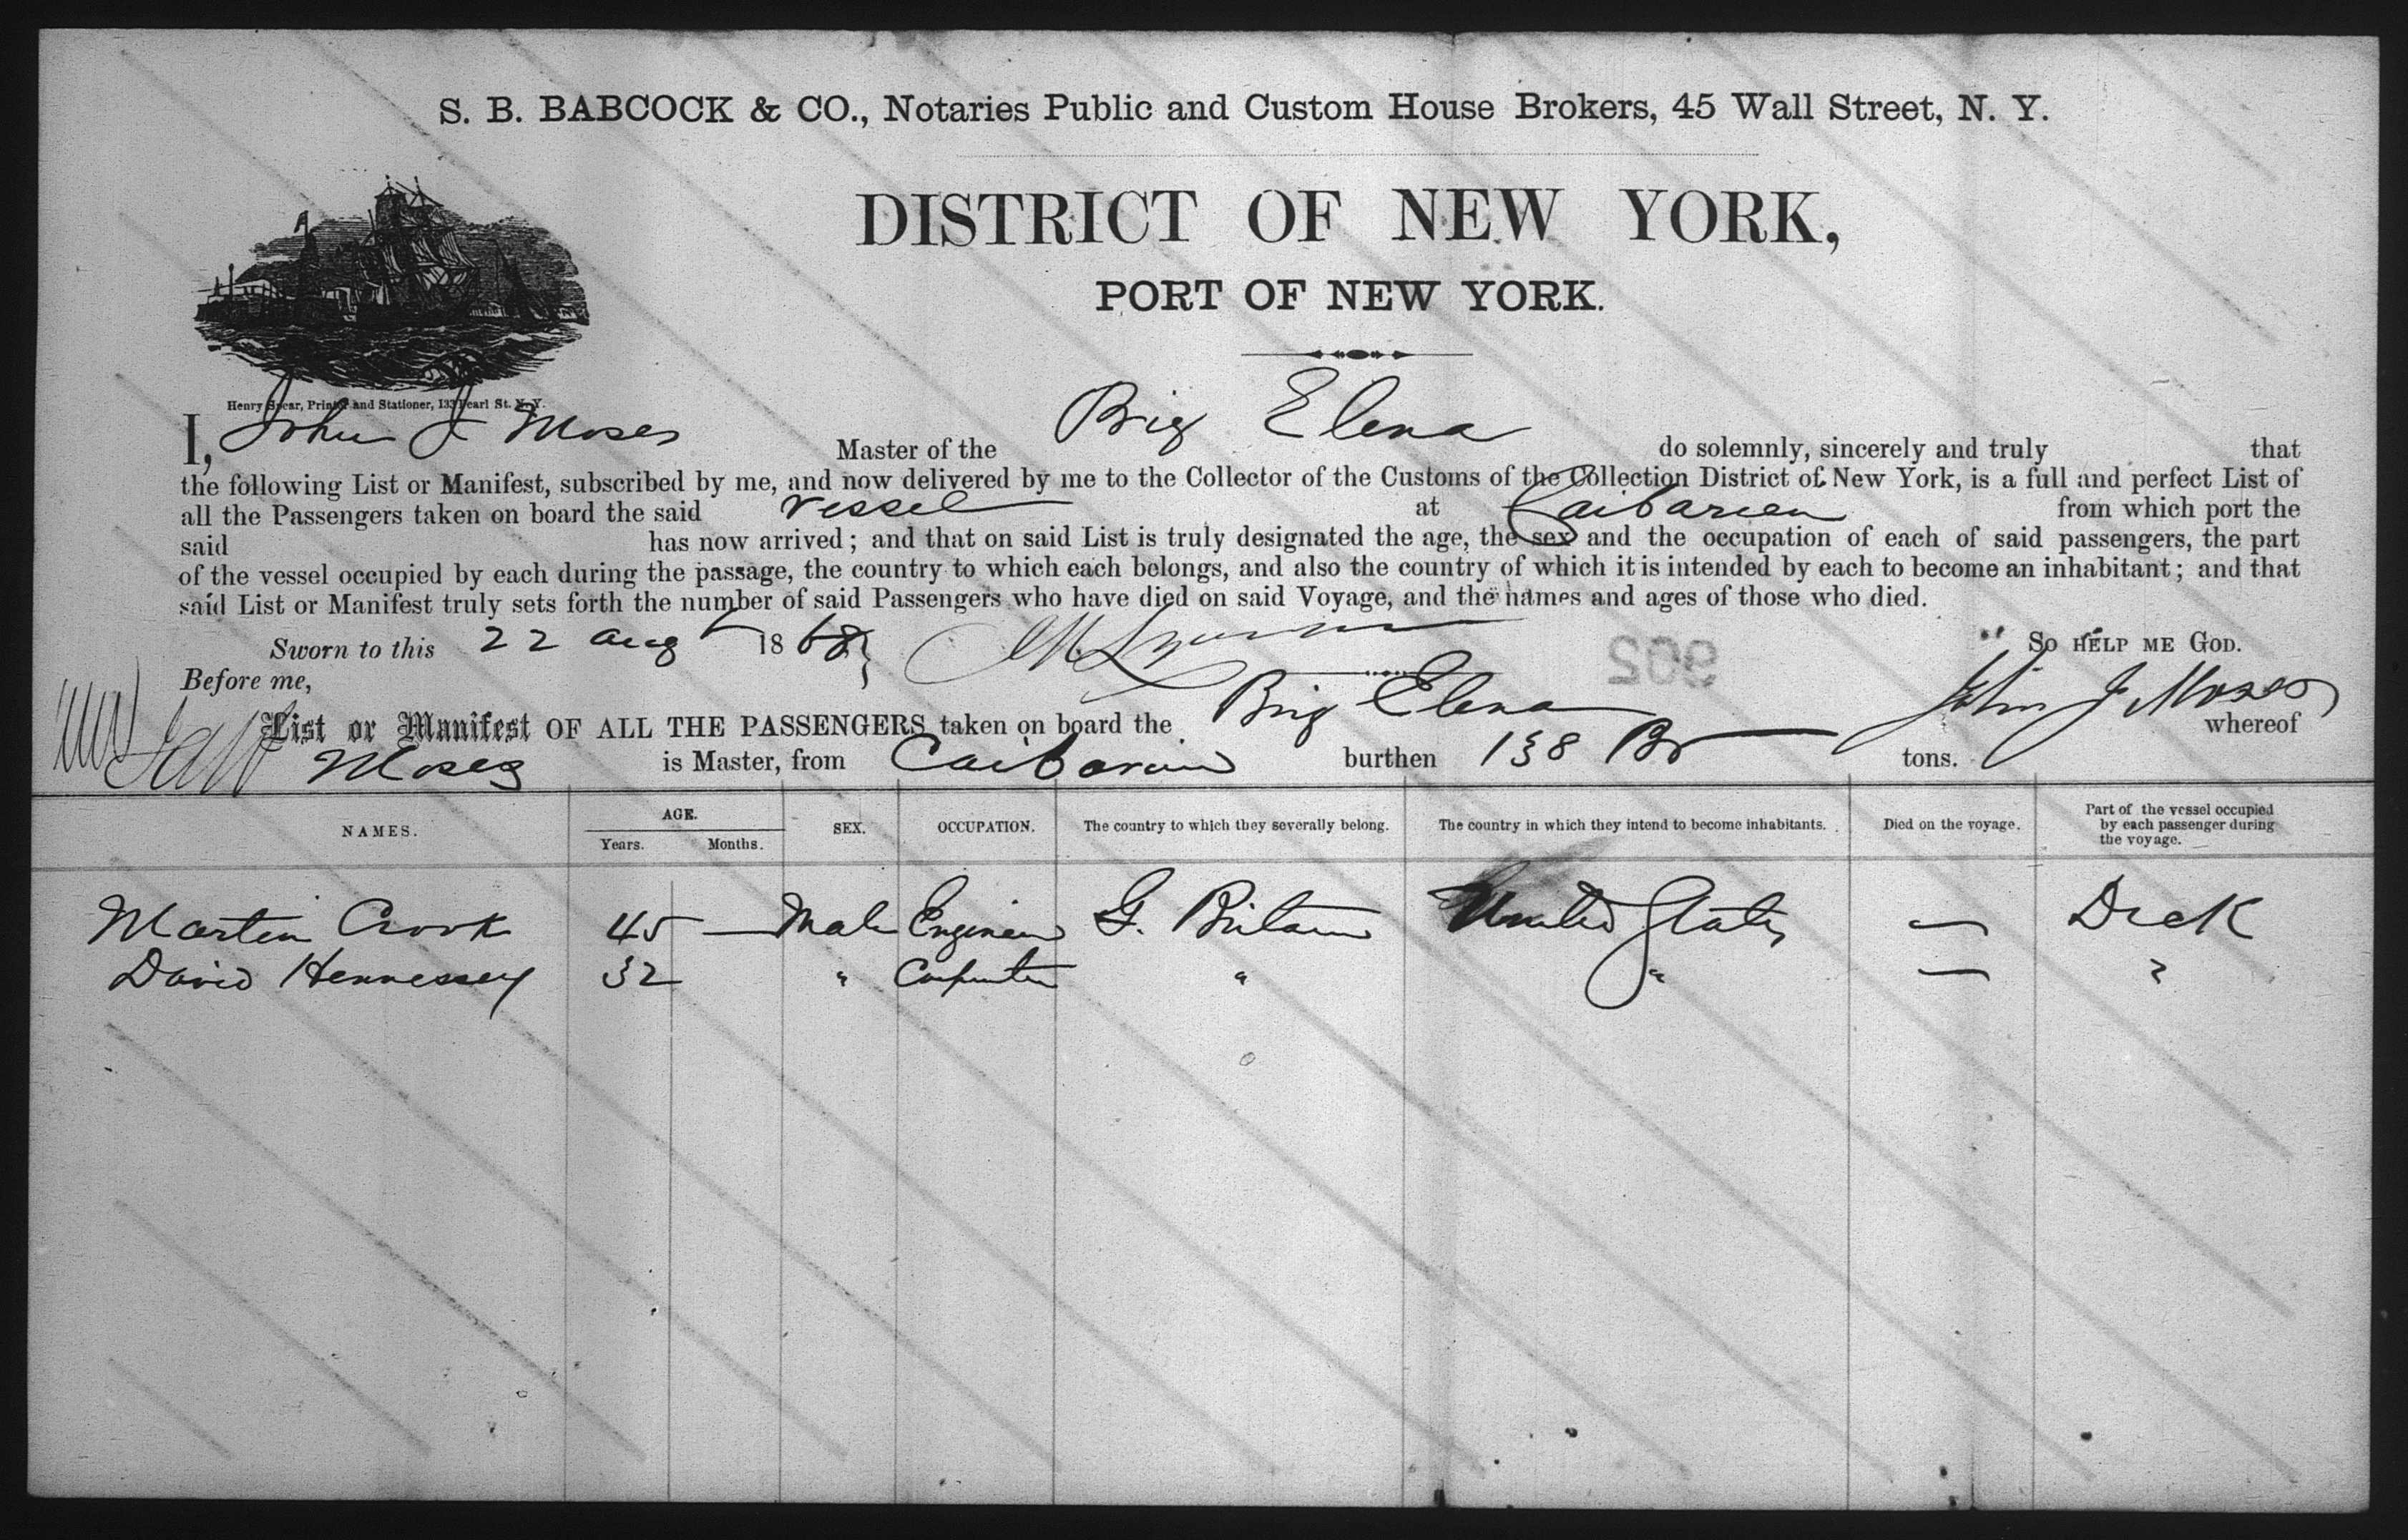 S. B. BABCOCK & CO., Notaries Public and Custom House Brokers, 45 Wall Street, N. Y.
DISTRICT OF NEW YORK,
PORT OF NEW YORK.
Henry Spear, Printer and Stationer, 133 Pearl St. N. Y.
I, John J Moses Master of the Brig Elena do solemnly, sincerely and truly that
the following List or Manifest, subscribed by me, and now delivered by me to the Collector of the Customs of the Collection District of New York, is a full and perfect List of
all the Passengers taken on board the said vessel at Caibarien from which port the
said has now arrived; and that on said List is truly designated the age, the sex and the occupation of each of said passengers, the part
of the vessel occupied by each during the passage, the country to which each belongs, and also the country of which it is intended by each to become an inhabitant; and that
said List or Manifest truly sets forth the number of said Passengers who have died on said Voyage, and the names and ages of those who died.
Sworn to this 22 Aug 1868 So HELP ME GOD.
902
Before me, John J Moses
List or Manifest OF ALL THE PASSENGERS taken on board the Brig Elena whereof
Moses is Master, from Caibarien burthen 138 Br tons.
NAMES. AGE. Years. Months. SEX. OCCUPATION. The country to which they severally belong. The country in which they intend to become inhabitants. Died on the voyage. Part of the vessel occupied by each passenger during the voyage.
Martin Crook 45 — Male Engineer G. Britain United States — Deck
David Hennessey 32 " Carpenter " " — "